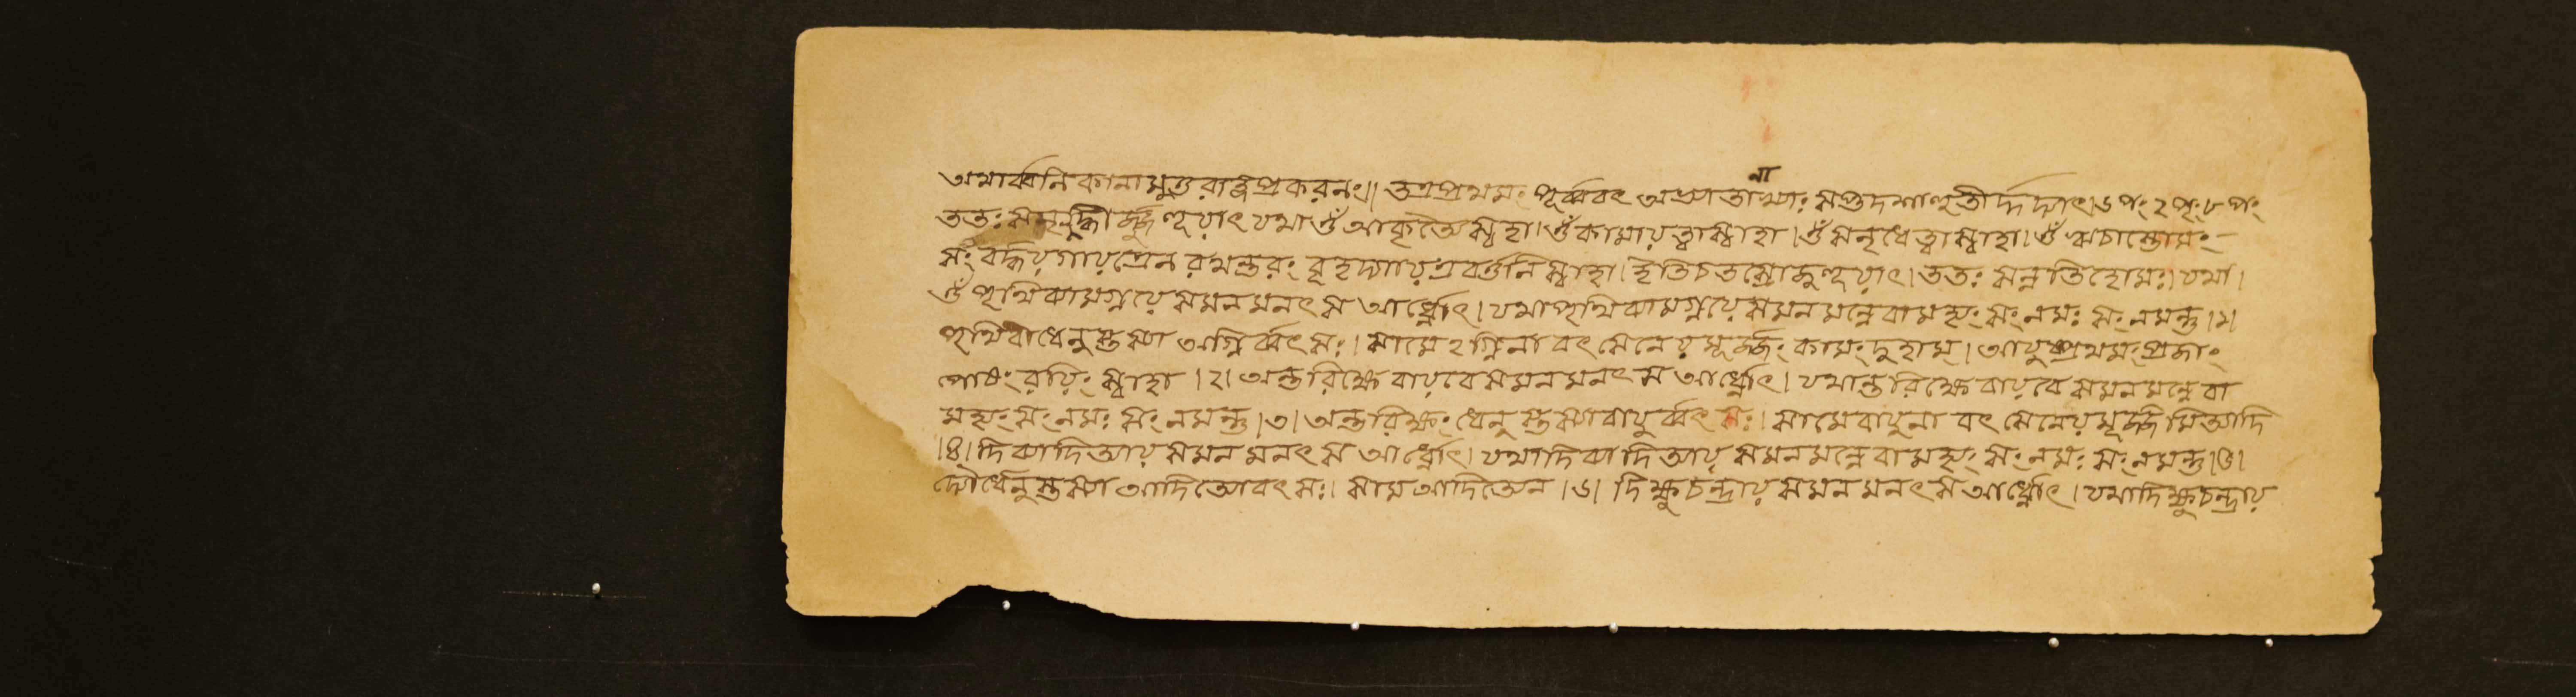 অথার্ব্বনিকানামুত্তরাঙ্গপ্রকরনং।। তত্রপ্রথমং পূর্ব্ববৎ অজ্যাতানাখ্যাঃ সপ্তদশাহুতীর্দ্দদ্যাৎ।৬পং ২পৃং ৮পং
ততঃ সমৃদ্ধীর্জ্জুহুয়াৎ যথা ওঁ আকূত্যৈ স্বাহা। ওঁ কামায় ত্বা স্বাহা। ওঁ সমৃধে ত্বা স্বাহা। ওঁ ঋচাস্তোমং
সং বর্দ্ধয় গায়ত্রেন রথন্তরং বৃহদ্গায়ত্রবর্ত্তনি স্বাহা। ইতি চতস্রো জুহুয়াৎ। ততঃ সন্নতিহোমঃ। যথা।
ওঁ পৃথিব্যামগ্নয়ে সমনমনৎ স আর্ধ্নোৎ। যথা পৃথিব্যামগ্নয়ে সমনমন্নেবা মহ্যং সং নমঃ সং নমন্তু।১।
পৃথিবী ধেনুস্তস্যা অগ্নির্ব্বৎসঃ। সা মে২গ্নিনা বৎসেনেষমূর্জ্জং কামং দুহাম্। আয়ুষ্প্রথমং প্রজাং
পোষং রয়িং স্বাহা।২। অন্তরিক্ষে বায়বে সমনমনৎ স আর্ধ্নোৎ। যথান্তরিক্ষে বায়বে সমনমন্নেবা
মহ্যং সং নমঃ সং নমন্তু।৩। অন্তরিক্ষং ধেনুস্তস্যা বায়ুর্ব্বৎসঃ। সা মে বায়ুনা বৎসেনেষমূর্জ্জমিত্যাদি
।৪। দিব্যাদিত্যায় সমনমনৎ স আর্ধ্নোৎ। যথা দিব্যাদিত্যায় সমনমন্নেবা মহ্যং সং নমঃ সং নমন্তু।৫।
দ্যৌর্ধেনুস্তস্যা আদিত্যোবৎসঃ। সাম আদিত্যেন।৬। দিক্ষু চন্দ্রায় সমনমনৎ স আর্ধ্নোৎ। যথা দিক্ষু চন্দ্রায়